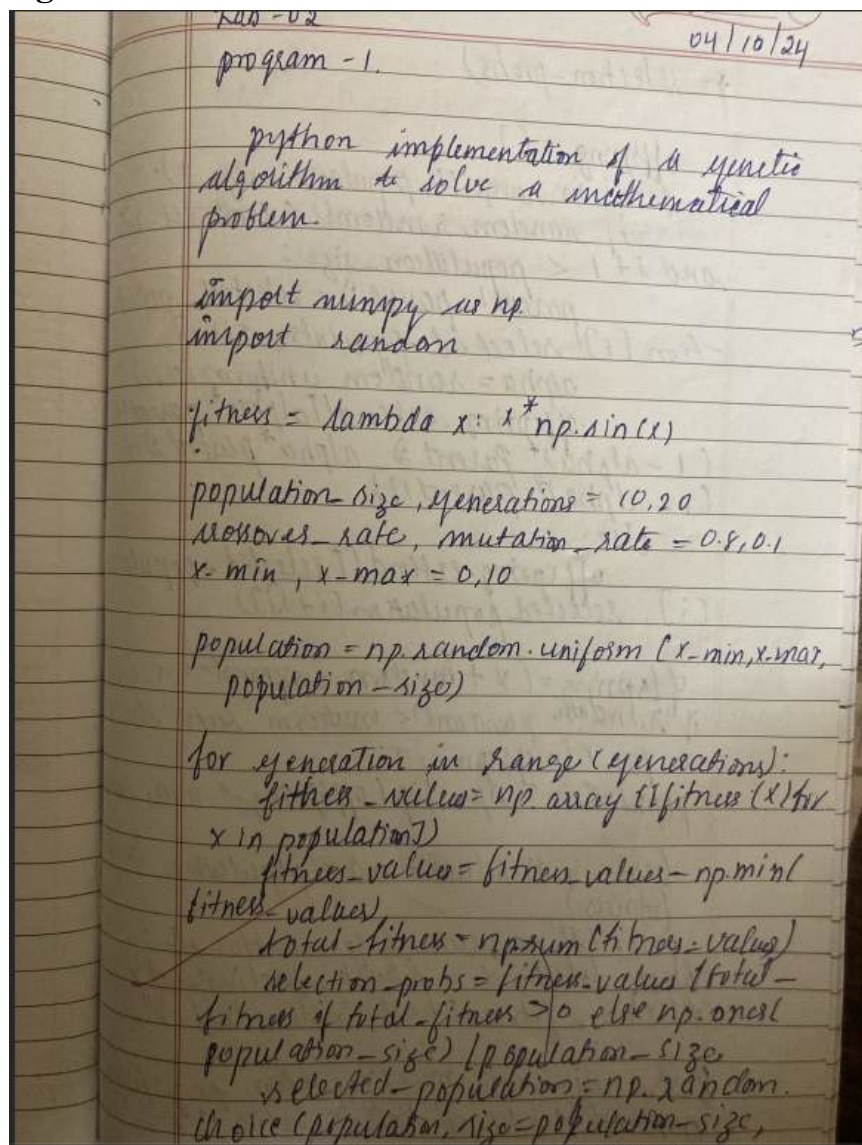 Lab-02
04/10/24
program -1.
python implementation of a genetic
algorithm to solve a mathematical
problem.
import numpy as np.
import random
fitness = lambda x: x*np.sin(x)
population_size, generations = 10,20
crossover_rate, mutation_rate = 0.8,0.1
x-min, x-max = 0,10
population = np.random.uniform (x-min,x-max,
population-size)
for generation in range (generations):
fitness-values = np.array ([fitness (x) for
x in population])
fitness-values = fitness-values - np.min(
fitness-values)
total-fitness = np.sum (fitness-values)
selection-probs = fitness-values / total-
fitness if total-fitness >0 else np.ones(
population-size) / population-size
selected-population = np.random.
choice (population, size=population-size,